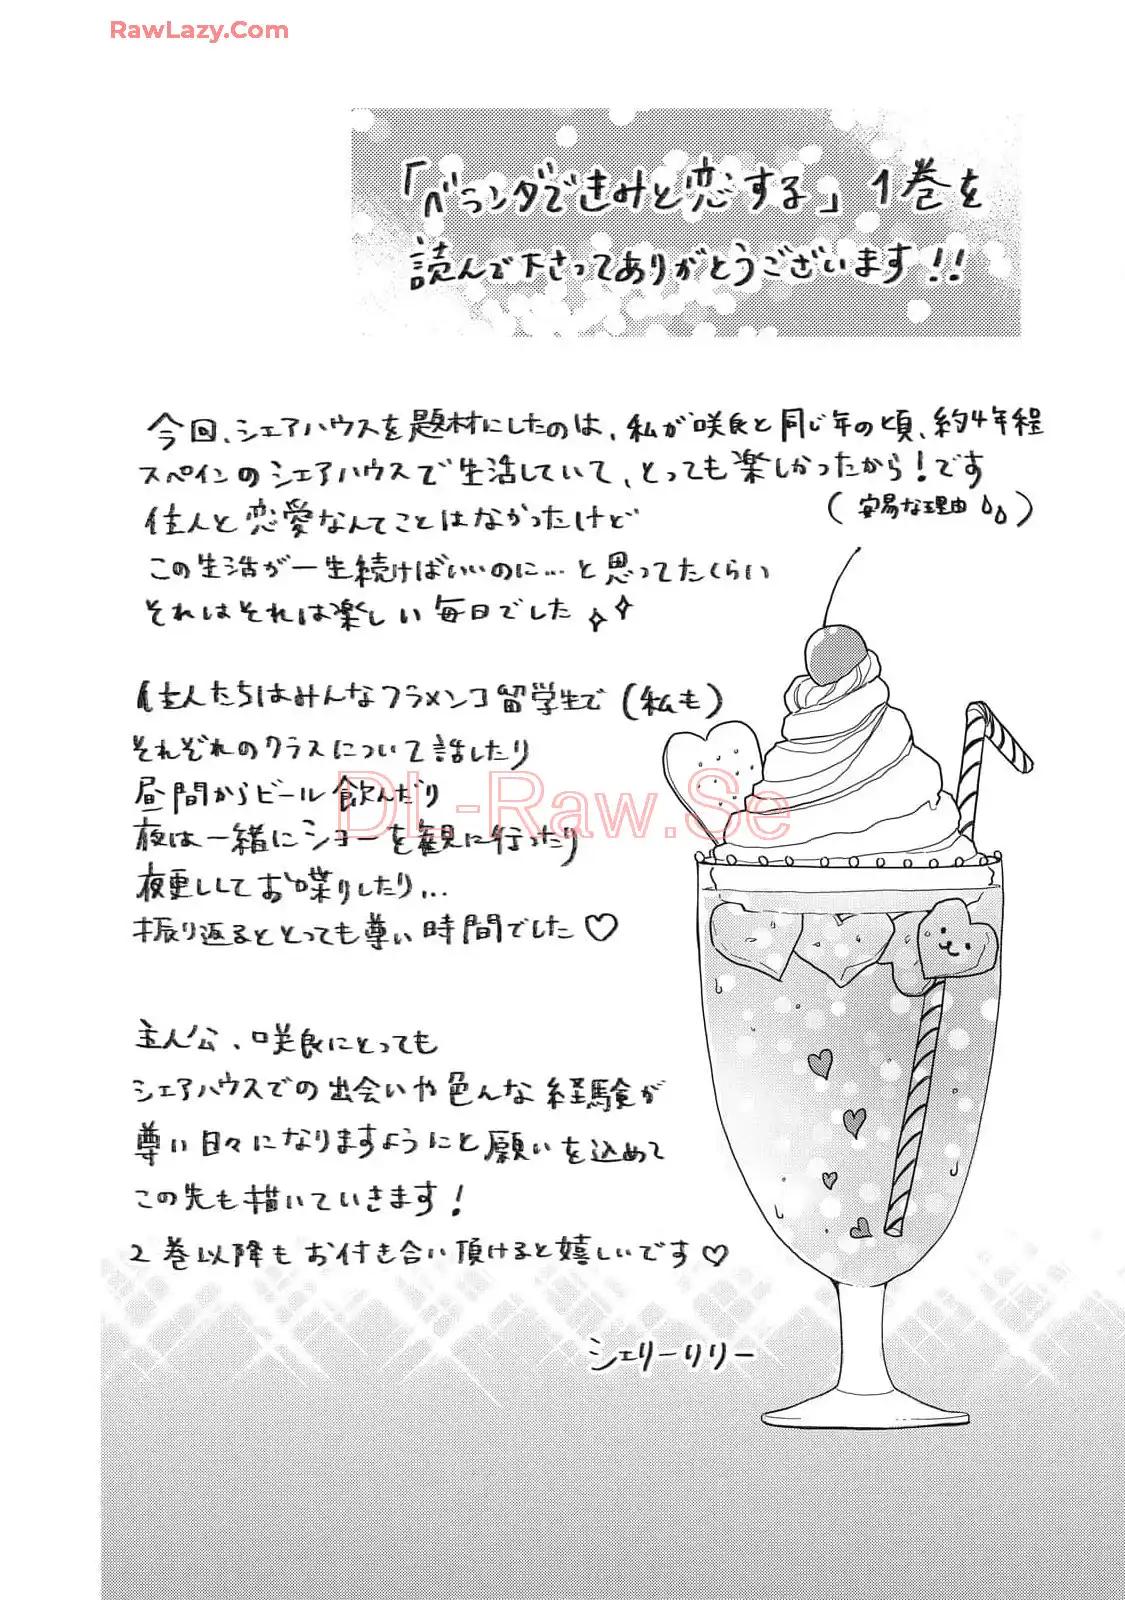 RawLazy.Com
「ベランダできみと恋する」1巻を
読んで下さってありがとうございます!!
今回、シェアハウスを題材にしたのは、私が咲良と同じ年の頃、約4年程
スペインのシェアハウスで生活していて、とっても楽しかったから!です
(安易な理由)
住人と恋愛なんてことはなかったけど
この生活が一生続けばいいのに…と思ってたくらい
それはそれは楽しい毎日でした
住人たちはみんなフラメンコ留学生で(私も)
それぞれのクラスについて話したり
昼間からビール飲んだり
DL-Raw.Se
夜は一緒にショーを観に行ったり
夜更ししてお喋りしたり…
振り返るととっても尊い時間でした♡
主人公、咲良にとっても
シェアハウスでの出会いや色んな経験が
尊い日々になりますようにと願いを込めて
この先も描いていきます!
2巻以降もお付き合い頂けると嬉しいです♡
シェリーリリー